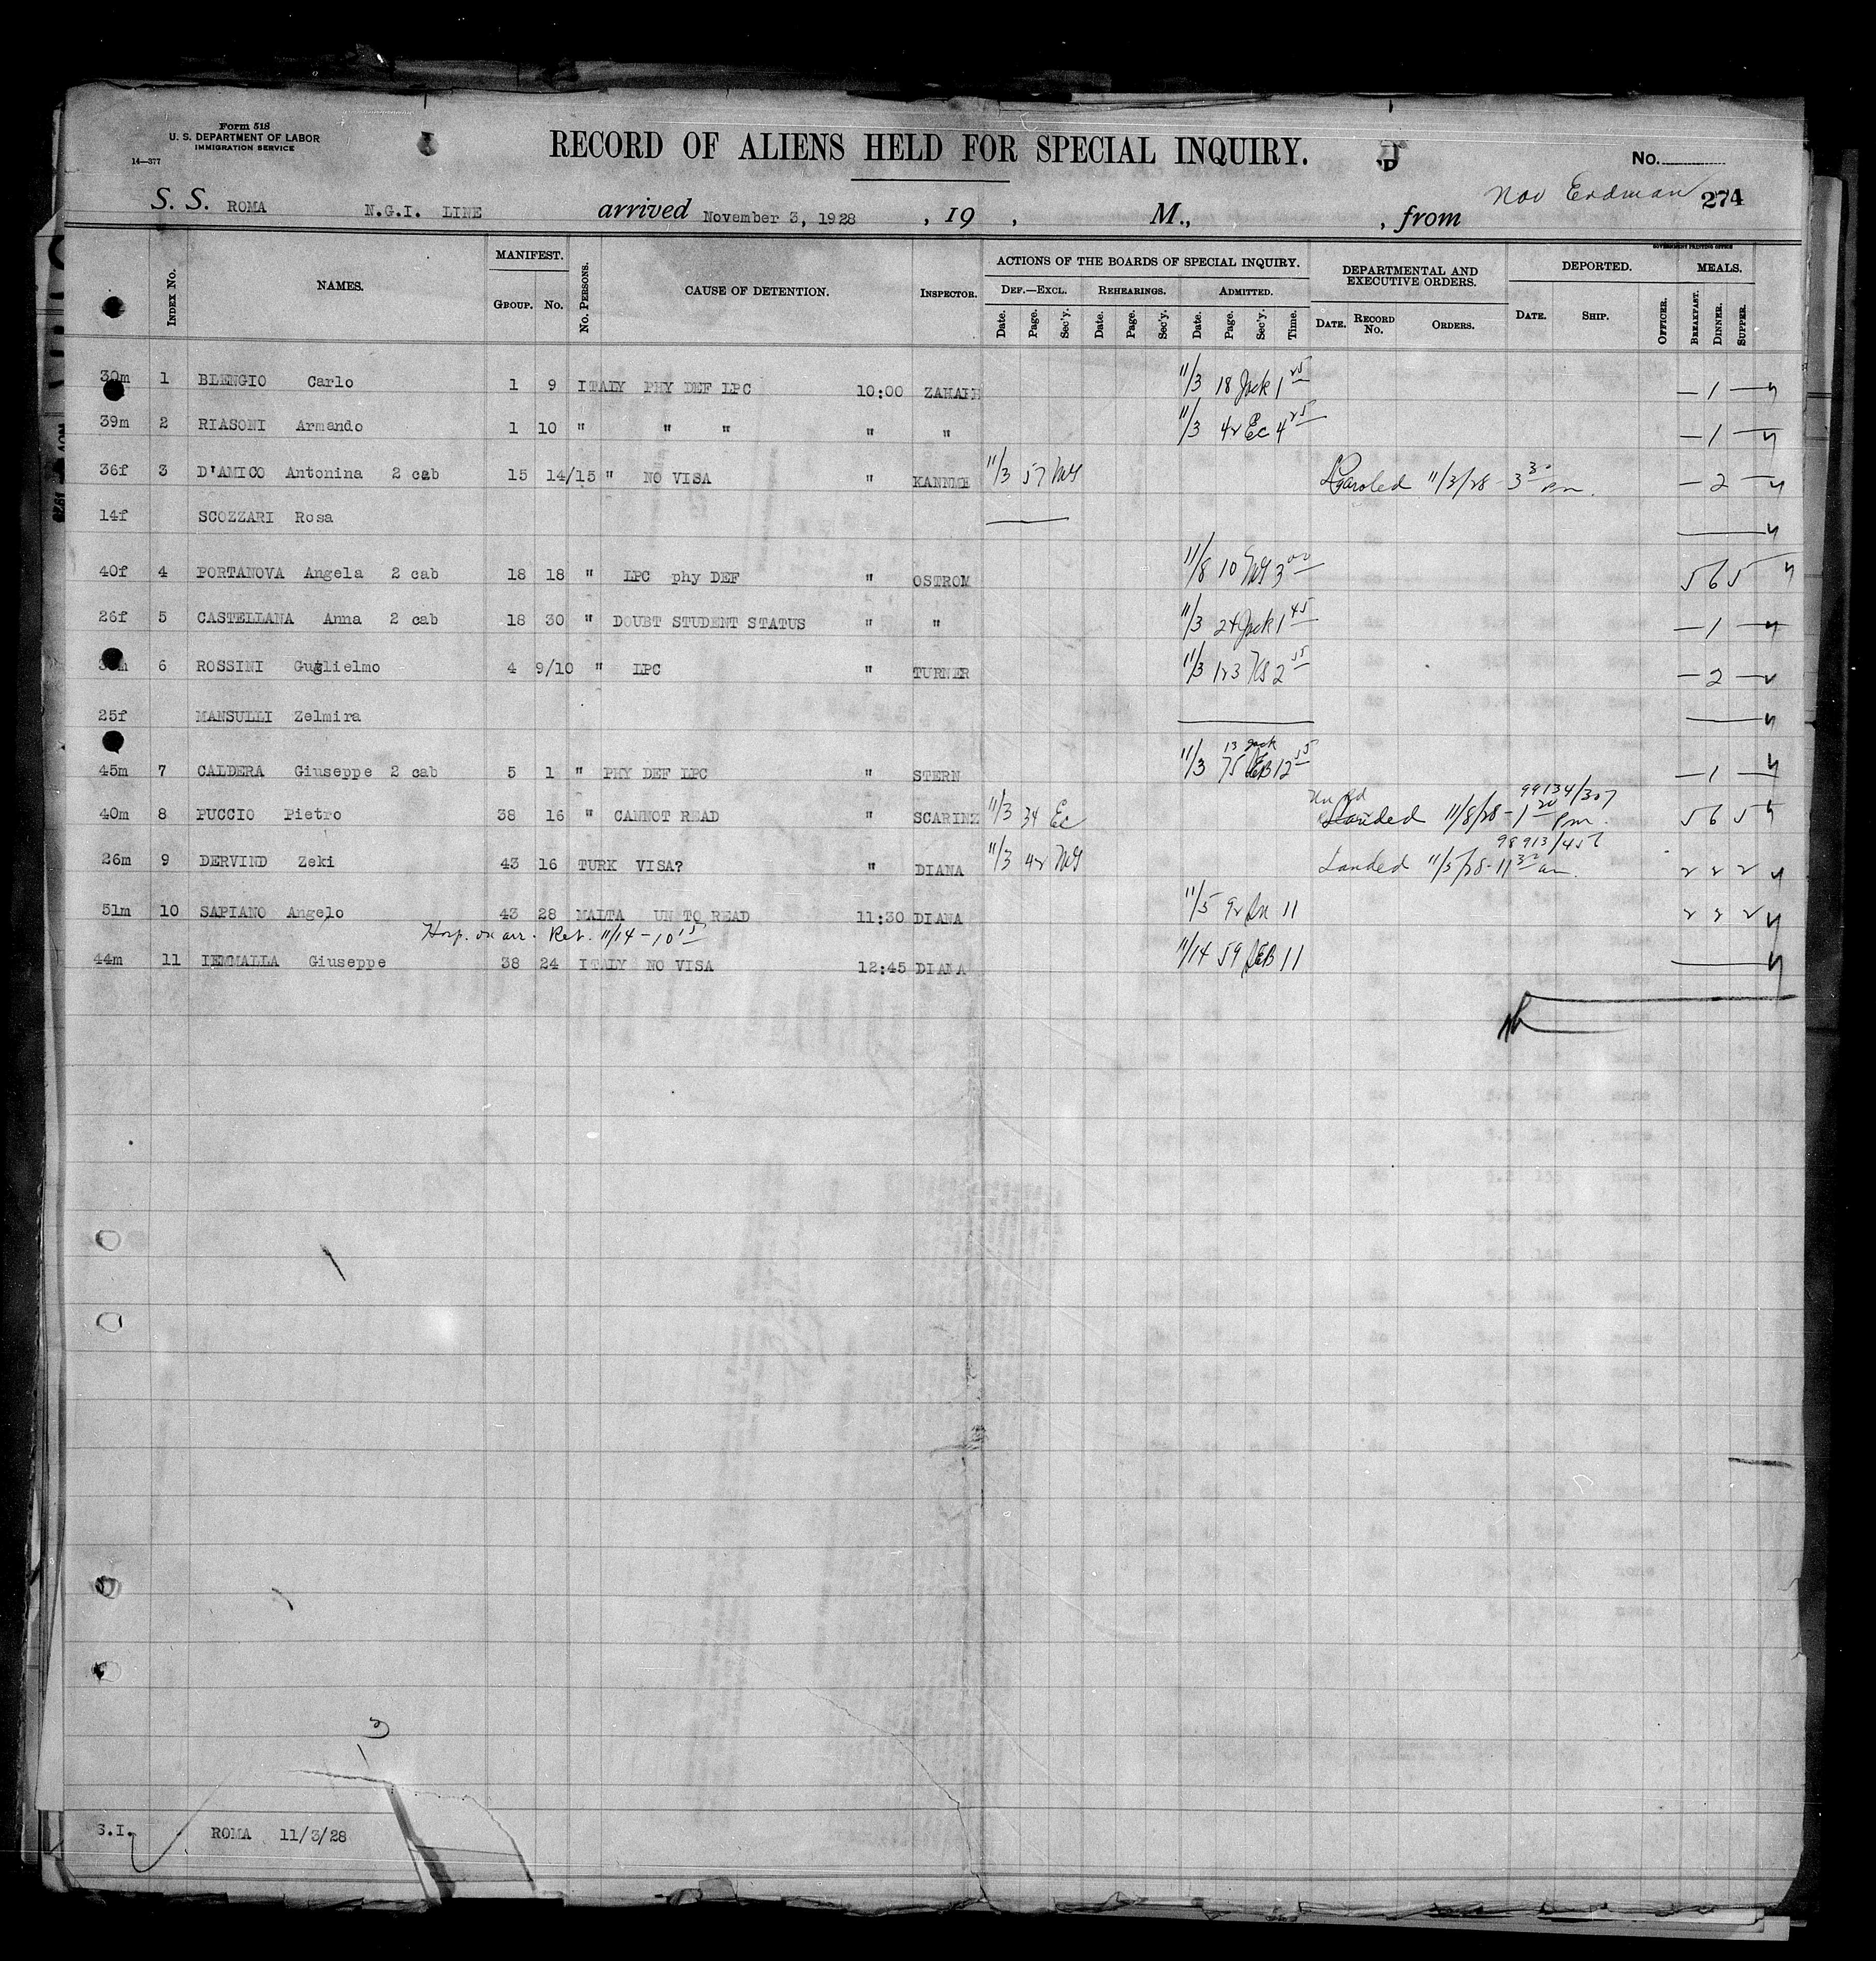 Form 518
U. S. DEPARTMENT OF LABOR
IMMIGRATION SERVICE
14—377
RECORD OF ALIENS HELD FOR SPECIAL INQUIRY.
No.
S. S. ROMA N.G.I. LINE arrived November 3, 1928 , 19 , M., , from Nov Erdman 274
GOVERNMENT PRINTING OFFICE
INDEX NO. NAMES. MANIFEST. GROUP. NO. NO. PERSONS. CAUSE OF DETENTION. INSPECTOR. ACTIONS OF THE BOARDS OF SPECIAL INQUIRY. DEPARTMENTAL AND EXECUTIVE ORDERS. DEPORTED. MEALS.
DEF.—EXCL. REHEARINGS. ADMITTED.
Date. Page. Sec'y. Date. Page. Sec'y. Date. Page. Sec'y. Time. DATE. RECORD NO. ORDERS. DATE. SHIP. OFFICER. BREAKFAST. DINNER. SUPPER.
30m 1 BLENGIO Carlo 1 9 ITALY PHY DEF LPC 10:00 11/3 18 Jack 1 25 — 1 —
39m 2 RIASONI Armando 1 10 " " " " " 11/3 42 Ec 4 25 — 1 —
36f 3 D'AMICO Antonina 2 cab 15 14/15 " NO VISA " KANNME 11/3 57 Paroled 11/3/28 - 3 30 pm. — 2 —
14f SCOZZARI Rosa
40f 4 PORTANOVA Angela 2 cab 18 18 " LPC phy DEF " OSTROM 11/8 10 3 00 5 6 5
26f 5 CASTELLANA Anna 2 cab 18 30 " DOUBT STUDENT STATUS " " 11/3 24 Jack 1 45 — 1 —
6 ROSSINI Guglielmo 4 9/10 " LPC " TURNER 11/3 123 2 55 — 2 —
25f MANSULLI Zelmira
13 Jack
45m 7 CALDERA Giuseppe 2 cab 5 1 " PHY DEF LPC " STERN 11/3 75 12 55 — 1 —
99134/307
40m 8 PUCCIO Pietro 38 16 " CANNOT READ " SCARINZ 11/3 34 Ec Landed 11/8/28 - 1 20 pm. 5 6 5
98913/457
26m 9 DERVIND Zeki 43 16 TURK VISA? " DIANA 11/3 42 Landed 11/5/28 - 11 30 am. 2 2 2
51m 10 SAPIANO Angelo 43 28 MALTA UN TO READ 11:30 DIANA 11/5 92 11 2 2 2
Hosp. on arr. Ret. 11/14 - 10 15
44m 11 IEMMALLA Giuseppe 38 24 ITALY NO VISA 12:45 DIANA 11/14 59 11
S.I. ROMA 11/3/28